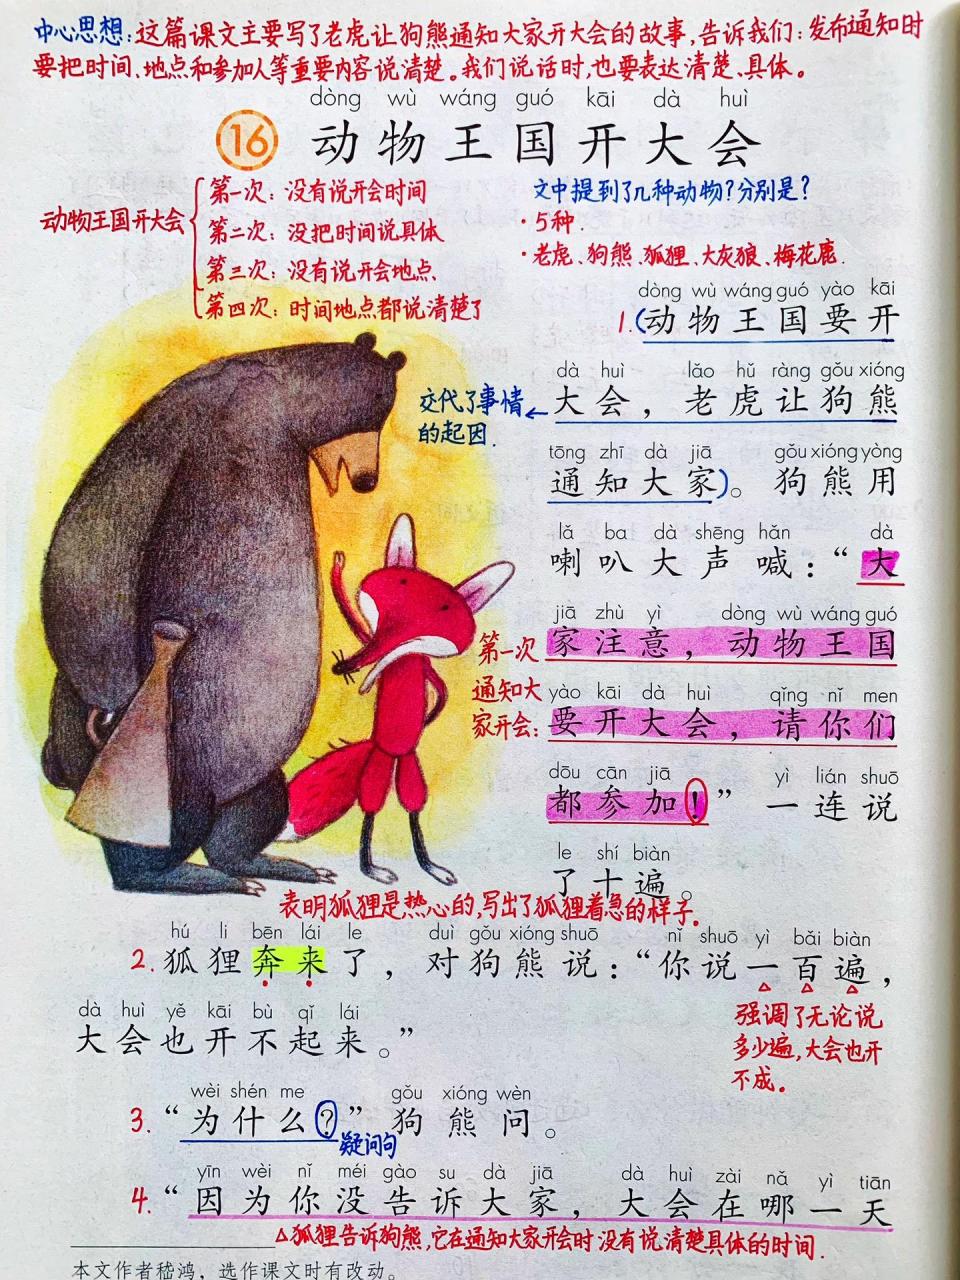 中心思想:这篇课文主要写了老虎让狗熊通知大家开大会的故事,告诉我们:发布通知时
要把时间、地点和参加人等重要内容说清楚。我们说话时,也要表达清楚、具体。
dòng wù wáng guó kāi dà huì
16 动物王国开大会
动物王国开大会
第一次:没有说开会时间
第二次:没把时间说具体
第三次:没有说开会地点
第四次:时间地点都说清楚了
文中提到了几种动物?分别是?
·5种.
·老虎、狗熊、狐狸、大灰狼、梅花鹿.
dòng wù wáng guó yào kāi
1.(动物王国要开
dà huì lǎo hǔ ràng gǒu xióng
大会,老虎让狗熊
交代了事情
的起因.
tōng zhī dà jiā gǒu xióng yòng
通知大家)。狗熊用
lǎ ba dà shēng hǎn dà
喇叭大声喊:“大
jiā zhù yì dòng wù wáng guó
家注意,动物王国
第一次
通知大
家开会:
yào kāi dà huì qǐng nǐ men
要开大会,请你们
dōu cān jiā yì lián shuō
都参加!”一连说
le shí biàn
了十遍。
表明狐狸是热心的,写出了狐狸着急的样子。
hú li bēn lái le duì gǒu xióng shuō nǐ shuō yì bǎi biàn
2.狐狸奔来了,对狗熊说:“你说一百遍,
强调了无论说
多少遍,大会也开
不成。
dà huì yě kāi bù qǐ lái
大会也开不起来。”
wèi shén me gǒu xióng wèn
3.“为什么?”狗熊问。
疑问句
yīn wèi nǐ méi gào su dà jiā dà huì zài nǎ yì tiān
4.“因为你没告诉大家,大会在哪一天
△狐狸告诉狗熊,它在通知大家开会时没有说清楚具体的时间.
本文作者嵇鸿,选作课文时有改动。